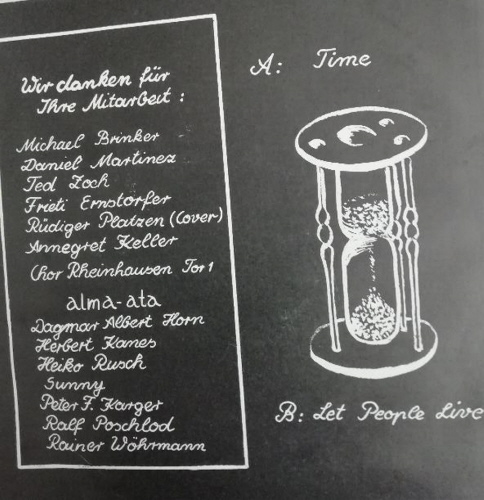 Wir danken für
Ihre Mitarbeit :
Michael Brinker
Daniel Martinez
Ted Zoch
Frieti Ernstörfer
Rüdiger Platzen (Cover)
Annegret Keller
Chor Rheinhausen Tor 1
alma-ata
Dagmar Albert Horn
Herbert Kanes
Heiko Rusch
Sunny
Peter F. Karger
Ralf Poschlod
Rainer Wöhrmann
A: Time
B: Let People Live